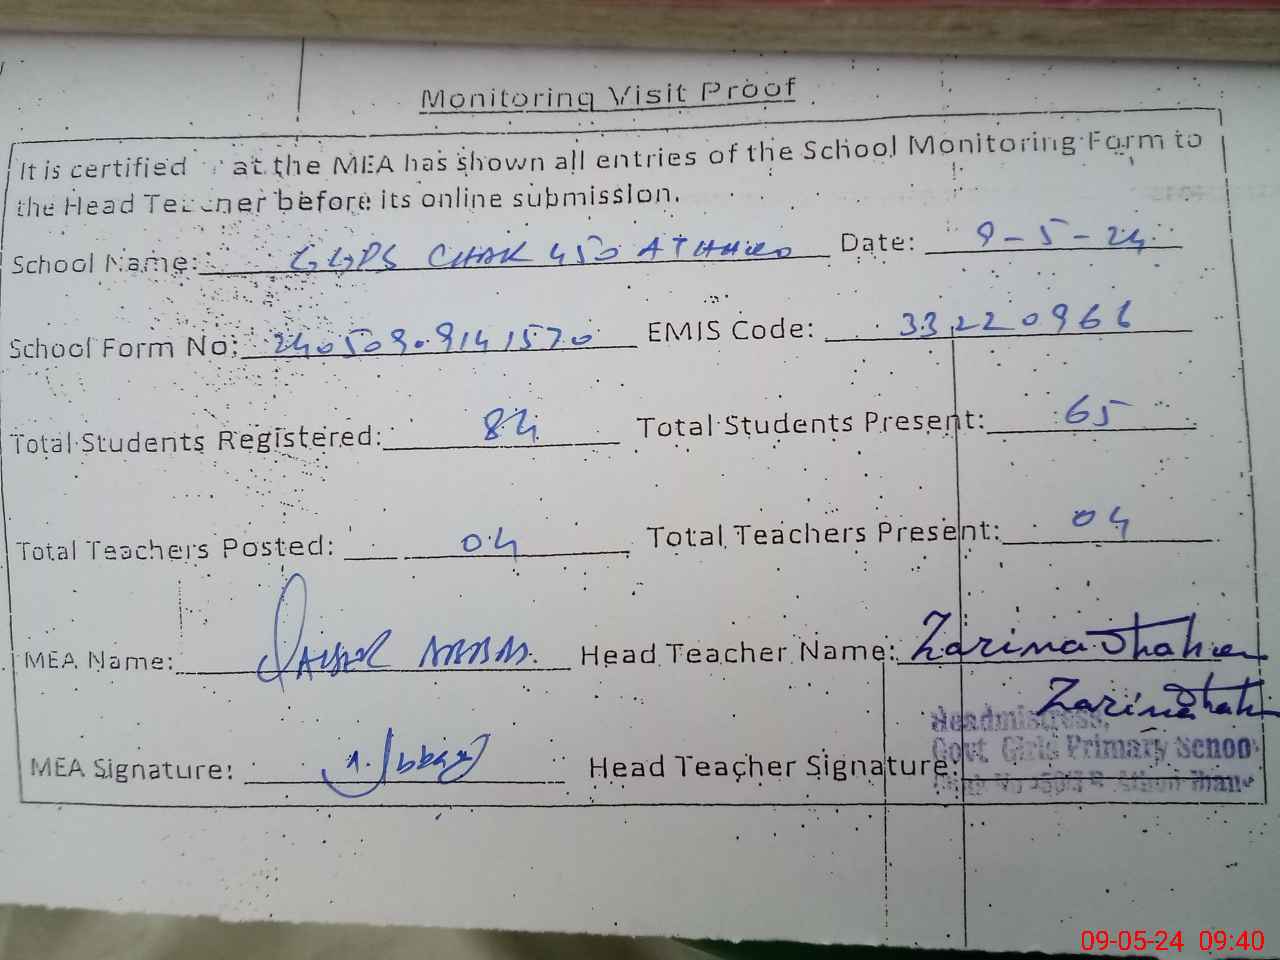 Monitoring Visit Proof
It is certified at the MEA has shown all entries of the School Monitoring Form to
the Head Teacher before its online submission.
School Name: GGPS CHAK 450 ATHARO Date: 9-5-24
School Form No: 240509.9141570 EMIS Code: 33220966
Total Students Registered: 84 Total Students Present: 65
Total Teachers Posted: 04 Total Teachers Present: 04
MEA Name: QAISER ABBAS. Head Teacher Name: Zarina Shaheen
Zarina Shah
Headmistress,
MEA Signature: Head Teacher Signature: Govt Girls Primary School
09-05-24 09:40